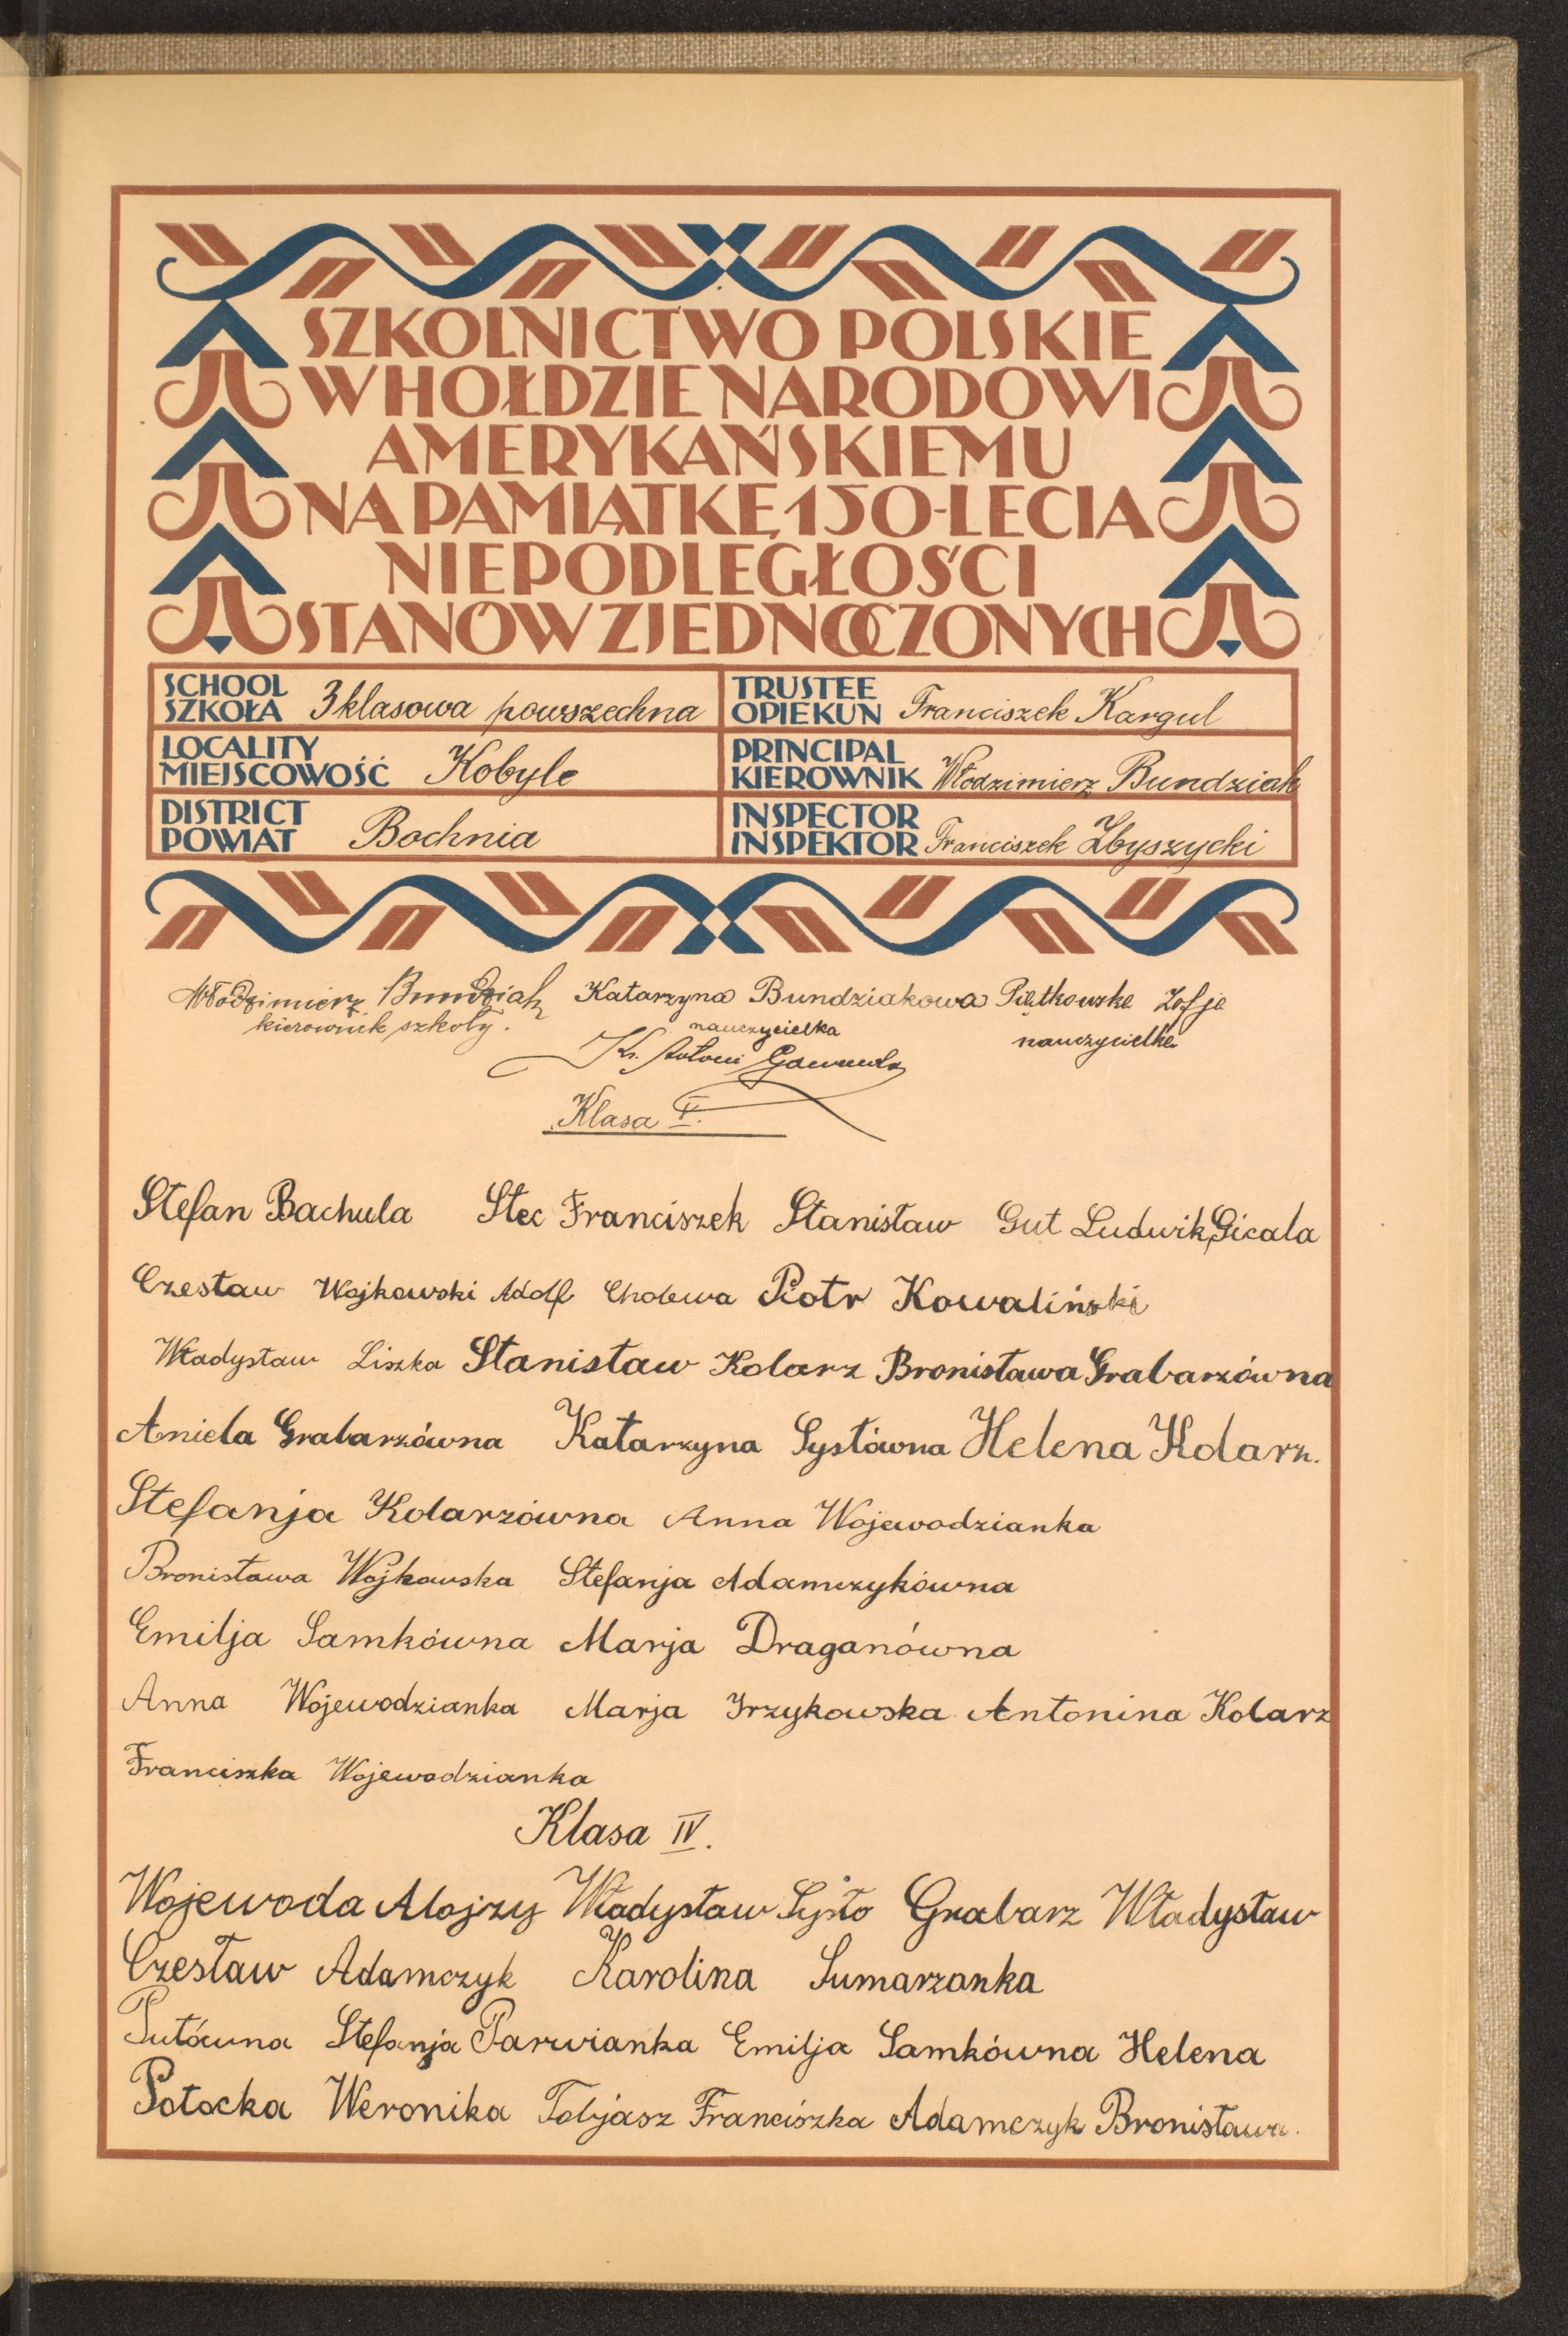 SZKOLNICTWO POLSKIE
W HOŁDZIE NARODOWI
AMERYKAŃSKIEMU
NA PAMIĄTKĘ 150-LECIA
NIEPODLEGŁOŚCI
STANÓW ZJEDNOCZONYCH
SCHOOL
SZKOŁA 3 klasowa powszechna
TRUSTEE
OPIEKUN Franciszek Kargul
LOCALITY
MIEJSCOWOŚĆ Kobyle
PRINCIPAL
KIEROWNIK Włodzimierz Bundziak
DISTRICT
POWIAT Bochnia
INSPECTOR
INSPEKTOR Franciszek Zbyszycki
Włodzimierz Bundziak Katarzyna Bundziakowa Piątkowska Zofja
kierownik szkoły. nauczycielka nauczycielka
Ks. Antoni
Klasa V.
Stefan Bachula Stec Franciszek Stanisław Gut Ludwik Gicala
Czesław Wojkowski Adolf Cholewa Piotr Kowaliński
Władysław Liszka Stanisław Kolarz Bronisława Grabarzówna
Aniela Grabarzówna Katarzyna Systówna Helena Kolarz.
Stefanja Kolarzówna Anna Wojewodzianka
Bronisława Wojkowska Stefanja Adamczykówna
Emilja Samkówna Marja Draganówna
Anna Wojewodzianka Marja Irzykowska Antonina Kolarz
Franciszka Wojewodzianka
Klasa IV.
Wojewoda Alojzy Władysław Systo Grabarz Władysław
Czesław Adamczyk Karolina Sumarzanka
Putówna Stefanja Parwianka Emilja Samkówna Helena
Potocka Weronika Tobjasz Franciszka Adamczyk Bronisława.